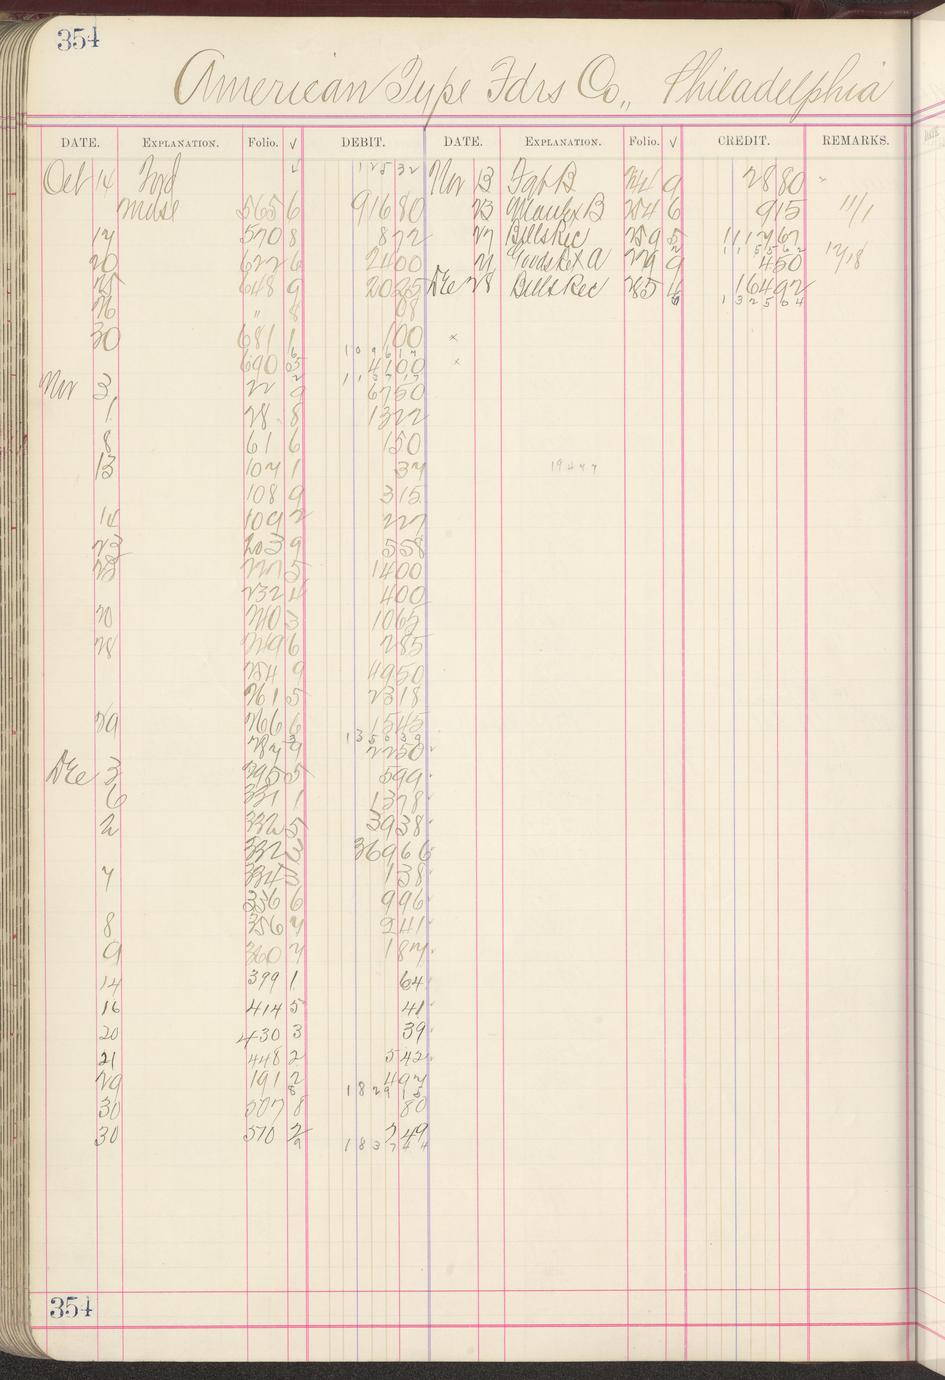 354
American Type Fdrs Co., Philadelphia
DATE. EXPLANATION. Folio. √ DEBIT. DATE. EXPLANATION. Folio. √ CREDIT. REMARKS.
Oct 14 Ford 125 32 Nov 13 244 9 28 80
Mdse 565 6 916 80 23 Manfex B 254 6 9 15 11/1
17 570 8 8 72 27 Bills Rec 259 5 1117 67
20 622 6 24 00 229 9 4 50 12/18
25 648 9 20 25 Dec 28 Bills Rec 285 4 164 92
26 " 8 08 1325 04
30 681 1 1 00
1096 17
690 5 41 00
Nov 3 22 9 67 50
1 28 8 13 22
8 61 6 1 50
13 107 1 37 19477
108 9 3 15
14 109 2 2 27
23 203 9 5 58
14 00
232 4 4 00
240 3 10 65
28 249 6 2 85
254 9 49 50
261 5 23 18
29 266 6 15 45
1350 39
287 9 22 50
Dec 3 295 5 5 99
6 331 1 13 78
2 332 5 39 38
332 3 369 66
7 334 5 1 38
336 6 9 96
8 356 7 2 41
9 360 7 1 87
14 399 1 64
16 414 5 41
20 430 3 39
21 448 2 5 42
29 191 2 4 97
1829 15
30 507 8 80
30 510 2 7 49
1837 44
354